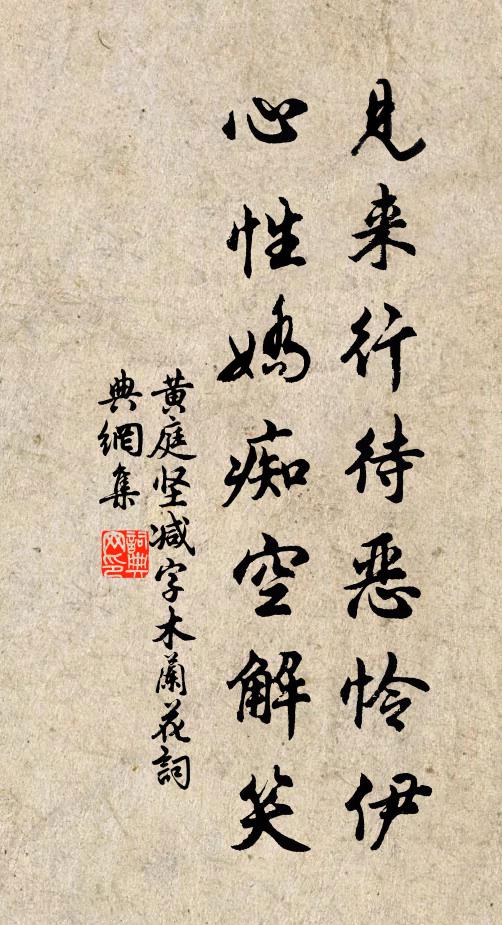 見来行待惡怜伊
心性嬌痴空解笑
黄庭坚减字木蘭花詞
典網集
詞典网印